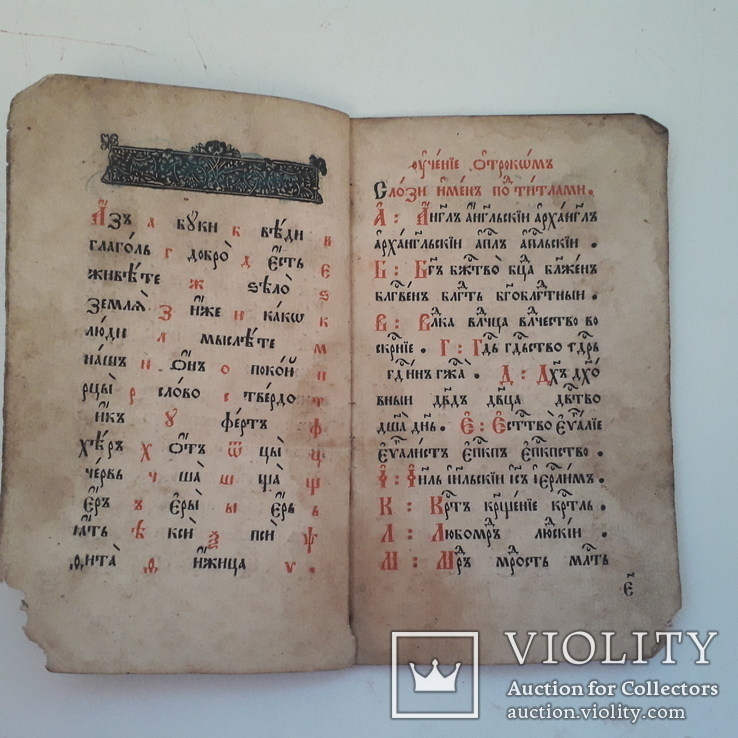 А҆́зъ а бꙋ́ки к вѣ́ди в
глаго́ль г добро̀ д є҆́сть є
живѣ́те ж ѕѣло̀ ѕ
землѧ̀ з и҆́же и ка́кѡ к
лю́ди л мыслѣ́те м
на́шъ н ѻ҆́нъ о поко́й п
рцы̀ р сло́во с тве́рдо т
и҆́къ ꙋ фе́ртъ ф
хѣ́ръ х ѿ ѿ цы̀ ц
че́рвь ч ша̀ ш ща̀ щ
є҆́ръ ъ є҆ры̀ ы є҆́рь ь
ꙗ҆́ть ѣ ксѝ ѯ псѝ ѱ
ѳита̀ ѳ и҆́жица ѵ .
ᲂу҆че́нїе ѻ҆трокѡ́мъ
Сло́зи и҆ме́нъ под̾ ти́тлами .
А : А҆́гг҃лъ а҆́гг҃льскїи а҆рха́гг҃лъ
а҆рха́гг҃льскїи а҆п҃лъ а҆п҃льскїи .
Б : Бг҃ъ бж҃тво̀ бц҃а бл҃же́нъ
блг҃ве́нъ блг҃ть бг҃облг҃тныи .
В : Влⷣка влⷣчца влⷣчество во
скр҃нїе . Г : Гдⷭ҇ь гдⷭ҇ьство гдⷭ҇рь
гдⷭ҇и́нъ гжⷭ҇а̀ . Д : Дх҃ъ дх҃о́
вныи дв҃дъ дв҃ца дв҃тво
дш҃а̀ дн҃ь . Е : Е҆стⷭ҇тво̀ є҆ѵⷢ҇а́лїе
є҆ѵⷢ҇али́стъ є҆пⷭ҇кпъ є҆пⷭ҇кпство .
І : І҆и҃ль і҆и҃льскїи і҆с҃ъ і҆ерⷭ҇ли́мъ .
К : Крⷭ҇тъ крⷭ҇ще́нїе крⷭ҇тль .
Л : Любомⷣръ людⷭ҇скїи .
М : Мⷣръ мⷣрость млⷭ҇ть
є҃
VIOLITY
Auction for Collectors
auction.violity.com